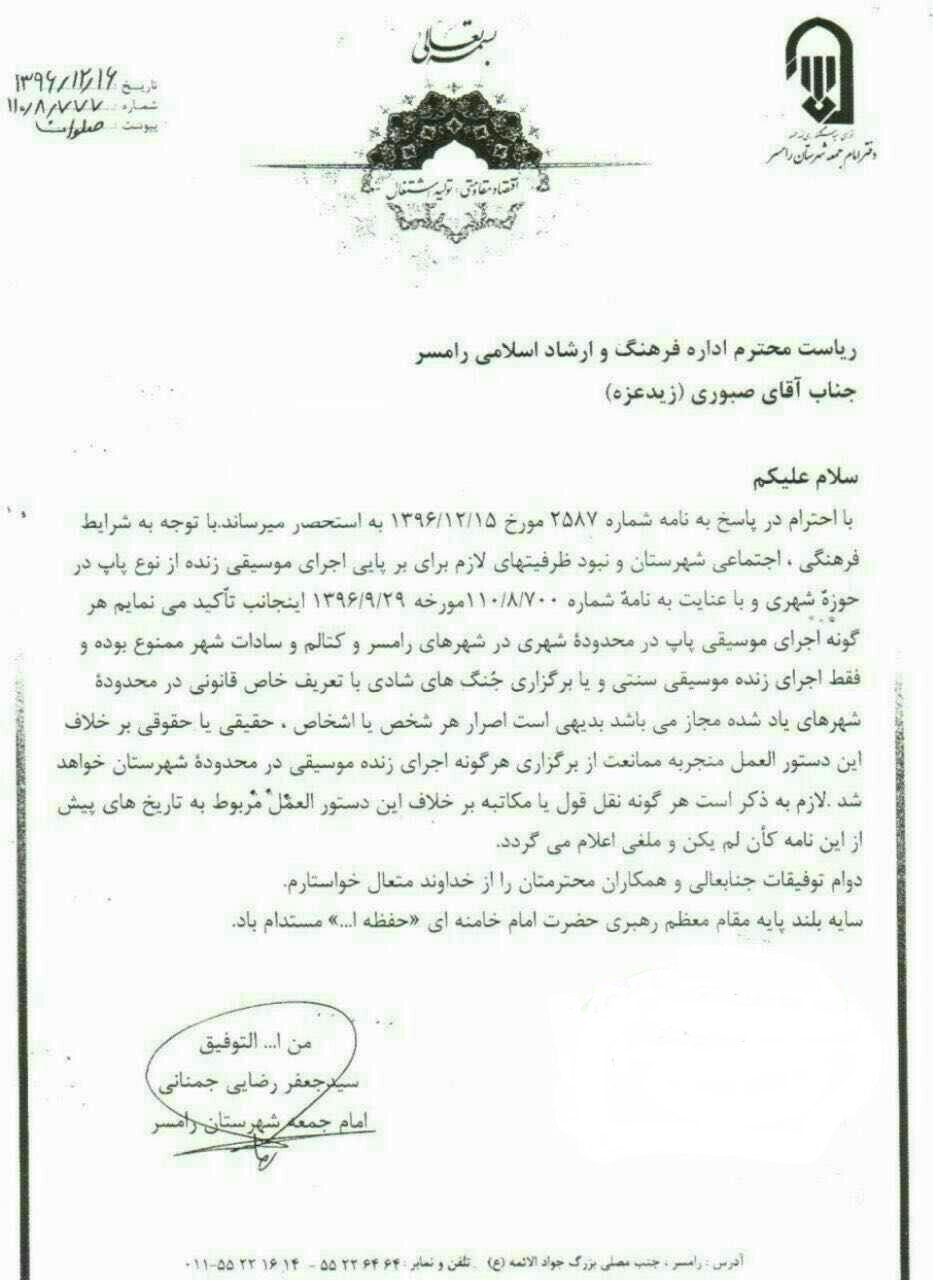 بسمه تعالی
تاریخ: ۱۳۹۶/۱۲/۱۶
شماره: ۱۱۰/۸/۷۷۷
پیوست: صلوات
دفتر امام جمعه شهرستان رامسر
اقتصاد مقاومتی: تولید، اشتغال
ریاست محترم اداره فرهنگ و ارشاد اسلامی رامسر
جناب آقای صبوری (زیدعزه)
سلام علیکم
با احترام در پاسخ به نامه شماره ۲۵۸۷ مورخ ۱۳۹۶/۱۲/۱۵ به استحصر میرساند.با توجه به شرایط
فرهنگی ، اجتماعی شهرستان و نبود ظرفیتهای لازم برای بر پایی اجرای موسیقی زنده از نوع پاپ در
حوزهٔ شهری و با عنایت به نامهٔ شماره ۱۱۰/۸/۷۰۰مورخه ۱۳۹۶/۹/۲۹ اینجانب تأکید می نمایم هر
گونه اجرای موسیقی پاپ در محدودهٔ شهری در شهرهای رامسر و کتالم و سادات شهر ممنوع بوده و
فقط اجرای زنده موسیقی سنتی و یا برگزاری جُنگ های شادی با تعریف خاص قانونی در محدودهٔ
شهرهای یاد شده مجاز می باشد بدیهی است اصرار هر شخص یا اشخاص ، حقیقی یا حقوقی بر خلاف
این دستور العمل منجربه ممانعت از برگزاری هرگونه اجرای زنده موسیقی در محدودهٔ شهرستان خواهد
شد .لازم به ذکر است هر گونه نقل قول یا مکاتبه بر خلاف این دستور العمل مربوط به تاریخ های پیش
از این نامه کأن لم یکن و ملغی اعلام می گردد.
دوام توفیقات جنابعالی و همکاران محترمتان را از خداوند متعال خواستارم.
سایه بلند پایه مقام معظم رهبری حضرت امام خامنه ای «حفظه ا...» مستدام باد.
من ا... التوفیق
سیدجعفر رضایی جمنانی
امام جمعه شهرستان رامسر
آدرس : رامسر ، جنب مصلی بزرگ جواد الائمه (ع) تلفن و نمابر : ۶۴ ۶۴ ۲۲ ۵۵ - ۱۴ ۱۶ ۲۲ ۵۵-۰۱۱